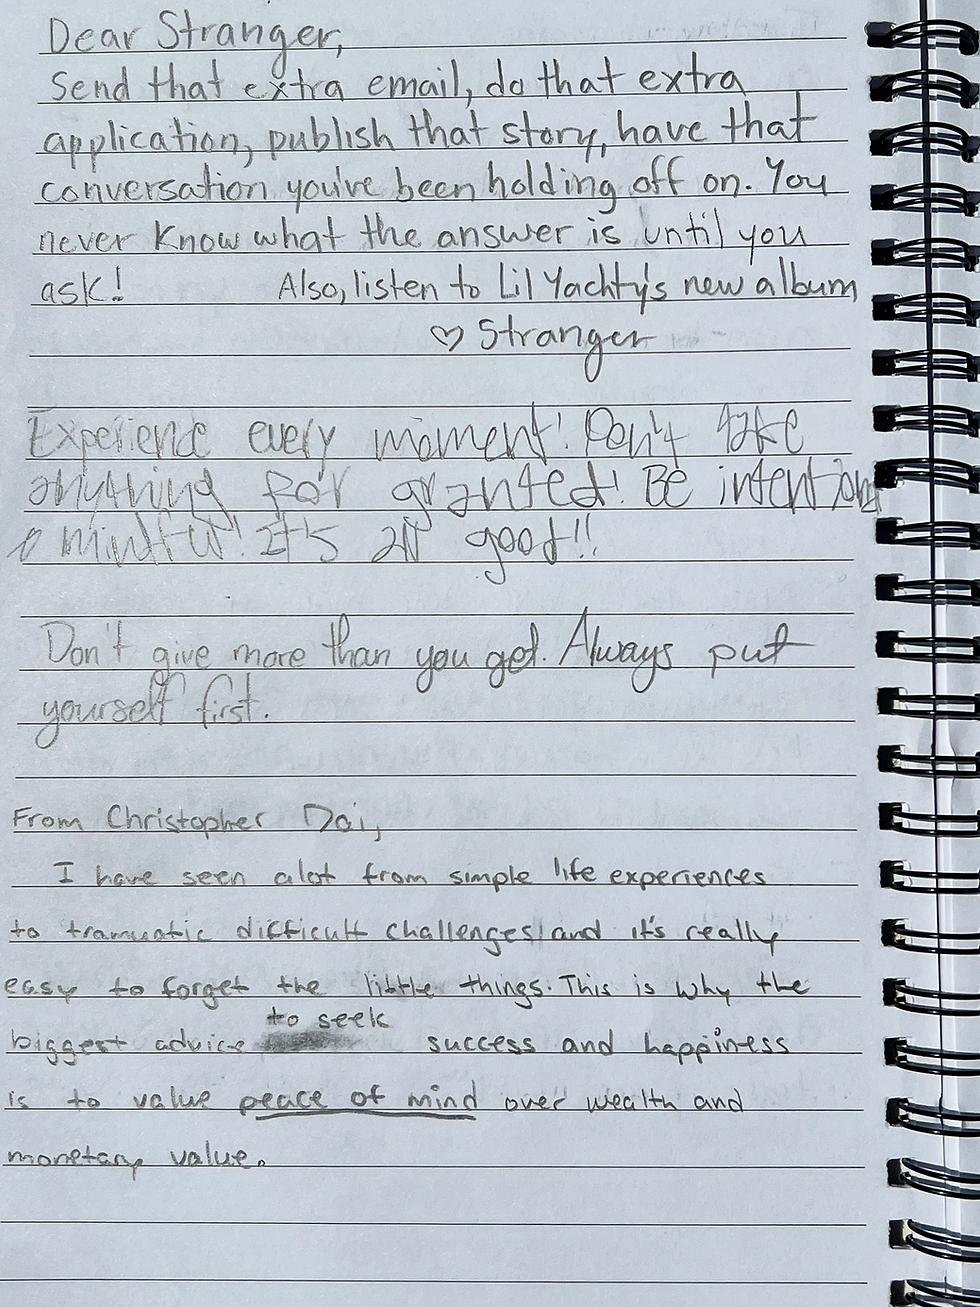 Dear Stranger,
Send that extra email, do that extra
application, publish that story, have that
conversation you've been holding off on. You
never know what the answer is until you
ask! Also, listen to Lil Yachty's new album
♡ Stranger
Experience every moment! Don't take
anything for granted! Be intentional
& mindful! It's all good!!
Don't give more than you get. Always put
yourself first.
From Christopher Dai,
I have seen alot from simple life experiences
to tramuatic difficult challenges and it's really
easy to forget the little things. This is why the
to seek
biggest advice success and happiness
is to value peace of mind over wealth and
monetary value.